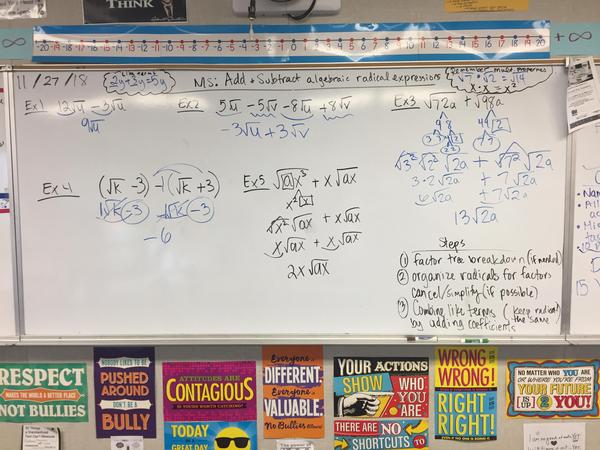 THINK
-20 -19 -18 -17 -16 -15 -14 -13 -12 -11 -10 -9 -8 -7 -6 -5 -4 -3 -2 -1 0 1 2 3 4 5 6 7 8 9 10 11 12 13 14 15 16 17 18 19 20
∞
+∞
11/27/18
2y+3y=5y
MS: Add + Subtract algebraic radical expressions
Remember
√7·√2 = √14
x·x = x²
Ex 1 12√u − 3√u
9√u
Ex 2 5√u − 5√v − 8√u + 8√v
−3√u + 3√v
Ex 3 √72a + √98a
9 8
49 2
3 3
7 7
√3² √2² √2a + √7² √2a
3·2√2a + 7√2a
6√2a + 7√2a
13√2a
Ex 4 (√k − 3) −1(√k + 3)
1√k − 3 −1√k − 3
−6
Ex 5 √ax³ + x√ax
x² x
√x² √ax + x√ax
x√ax + x√ax
2x√ax
Steps
① factor tree breakdown (if needed)
② organize radicals for factors
cancel/simplify (if possible)
③ Combine like terms (keep radical the same
by adding coefficients
RESPECT
MAKES THE WORLD A BETTER PLACE
NOT BULLIES
NOBODY LIKES TO BE
PUSHED
AROUND
DON'T BE A
BULLY
ATTITUDES ARE
CONTAGIOUS
IS YOURS WORTH CATCHING?
TODAY
IS A
GREAT DAY
Everyone is
DIFFERENT.
Everyone is
VALUABLE.
No Bullies Allowed!
YOUR ACTIONS
SHOW WHO
YOU ARE
THERE ARE NO
SHORTCUTS TO
WRONG IS
WRONG!
RIGHT IS
RIGHT!
NO MATTER WHO YOU ARE
OR WHERE YOU'RE FROM
YOUR FUTURE
IS UP 2 YOU!